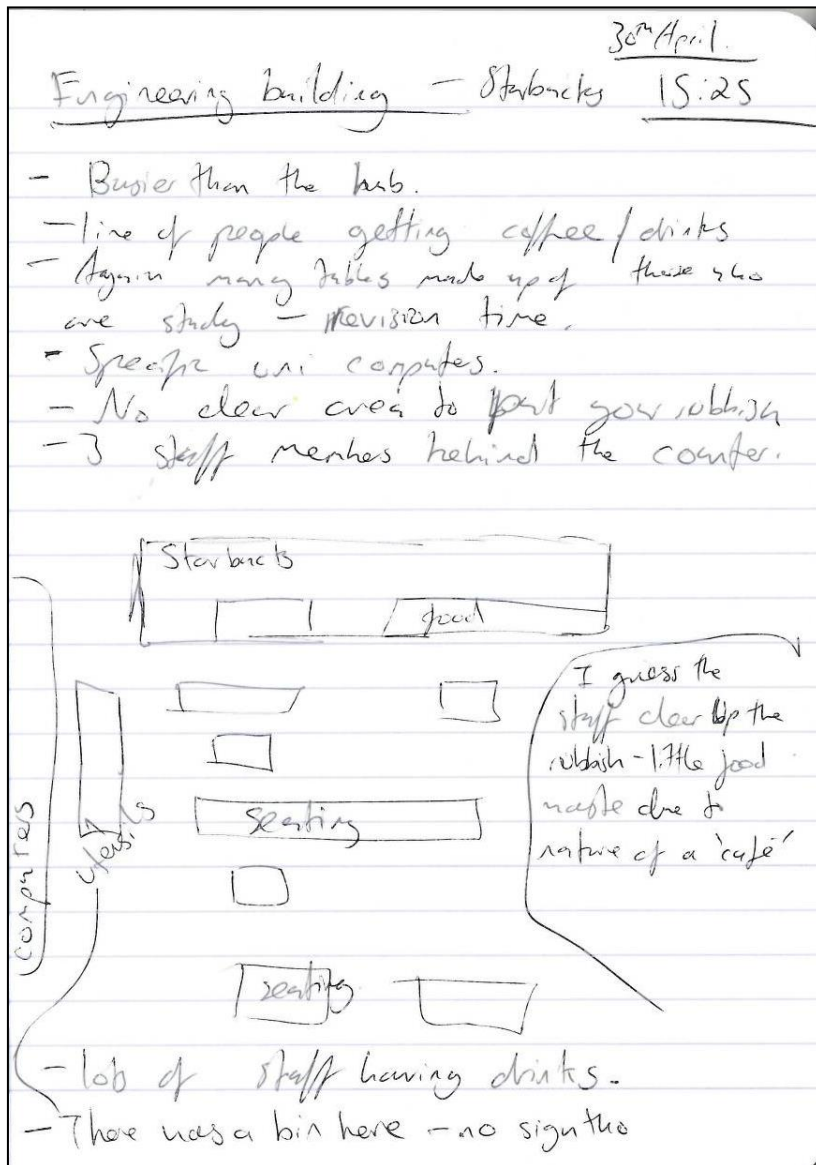 30th April.
Engineering building - Starbucks 15:25
- Busier than the hub.
- line of people getting coffee/drinks
- Again many tables made up of those who
are study - revision time.
- Specific uni computers.
- No clear area to put your rubbish
- 3 staff members behind the counter.
Starbucks
food
I guess the
staff clear up the
rubbish - little food
waste due to
nature of a 'café'
computers
utensils
seating
seating
- lots of staff having drinks.
- There was a bin here - no sign tho